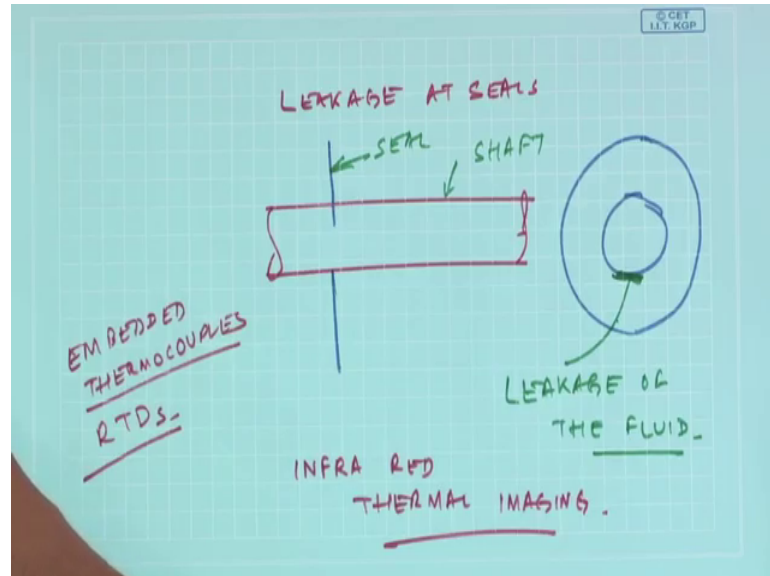 © CET
I.I.T. KGP
LEAKAGE AT SEALS
SEAL
SHAFT
EMBEDDED
THERMOCOUPLES
RTDs.
LEAKAGE OF
THE FLUID.
INFRA RED
THERMAL IMAGING.